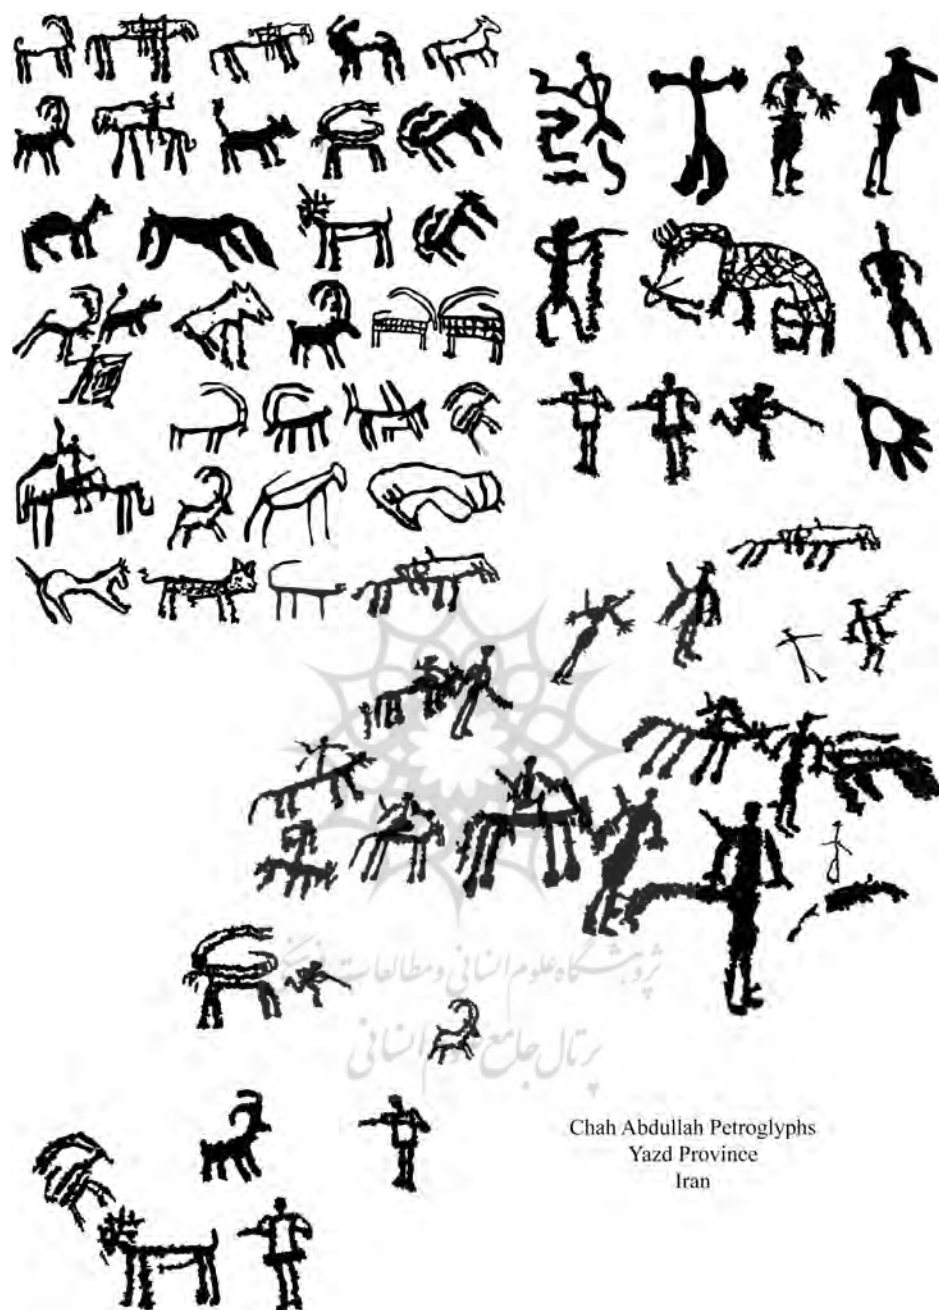 پژوهشگاه علوم انسانی و مطالعات فرهنگی
پرتال جامع علوم انسانی
Chah Abdullah Petroglyphs
Yazd Province
Iran